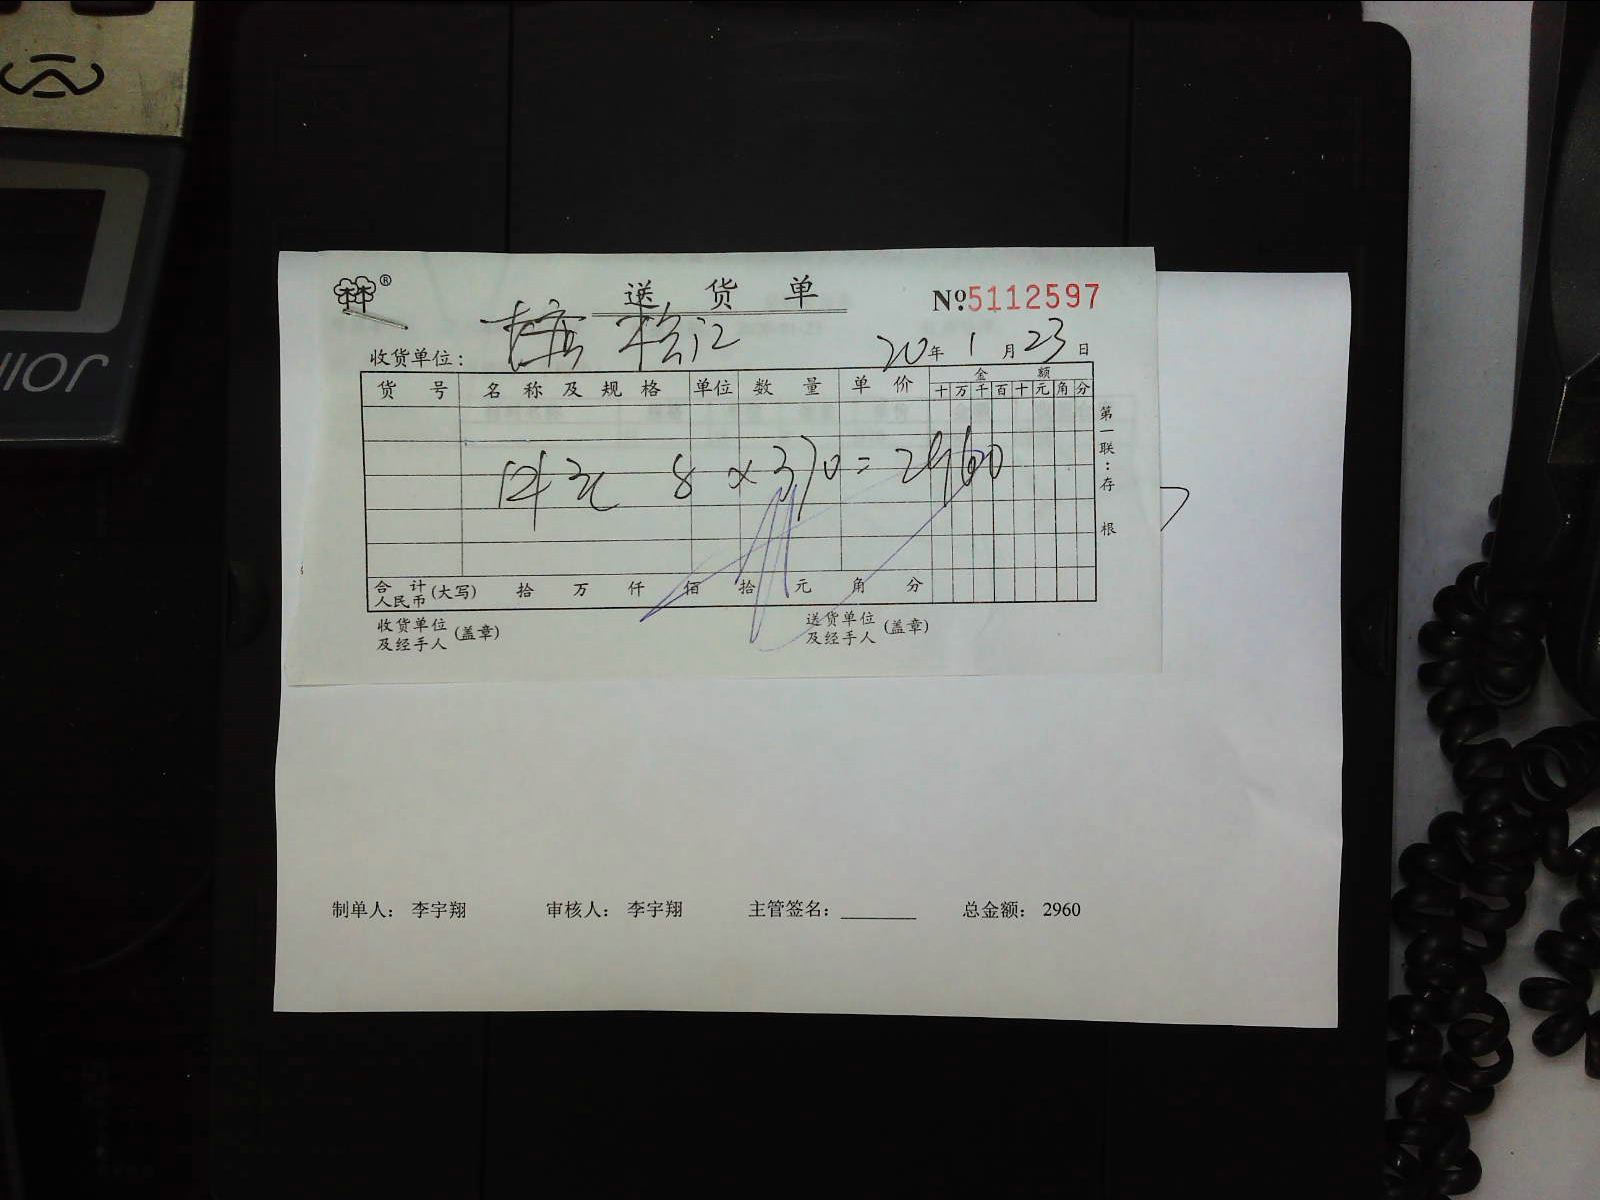 ®
送 货 单
№5112597
收货单位:
20年 1月23日
货 号 名 称 及 规 格 单位 数 量 单 价 金 额
十 万 千 百 十 元 角 分
8 × 370 = 2960
合 计 (大写) 拾 万 仟 佰 拾 元 角 分
人民币
收货单位 (盖章) 送货单位 (盖章)
及经手人 及经手人
第一联:存根
制单人: 李宇翔 审核人: 李宇翔 主管签名: ________ 总金额: 2960